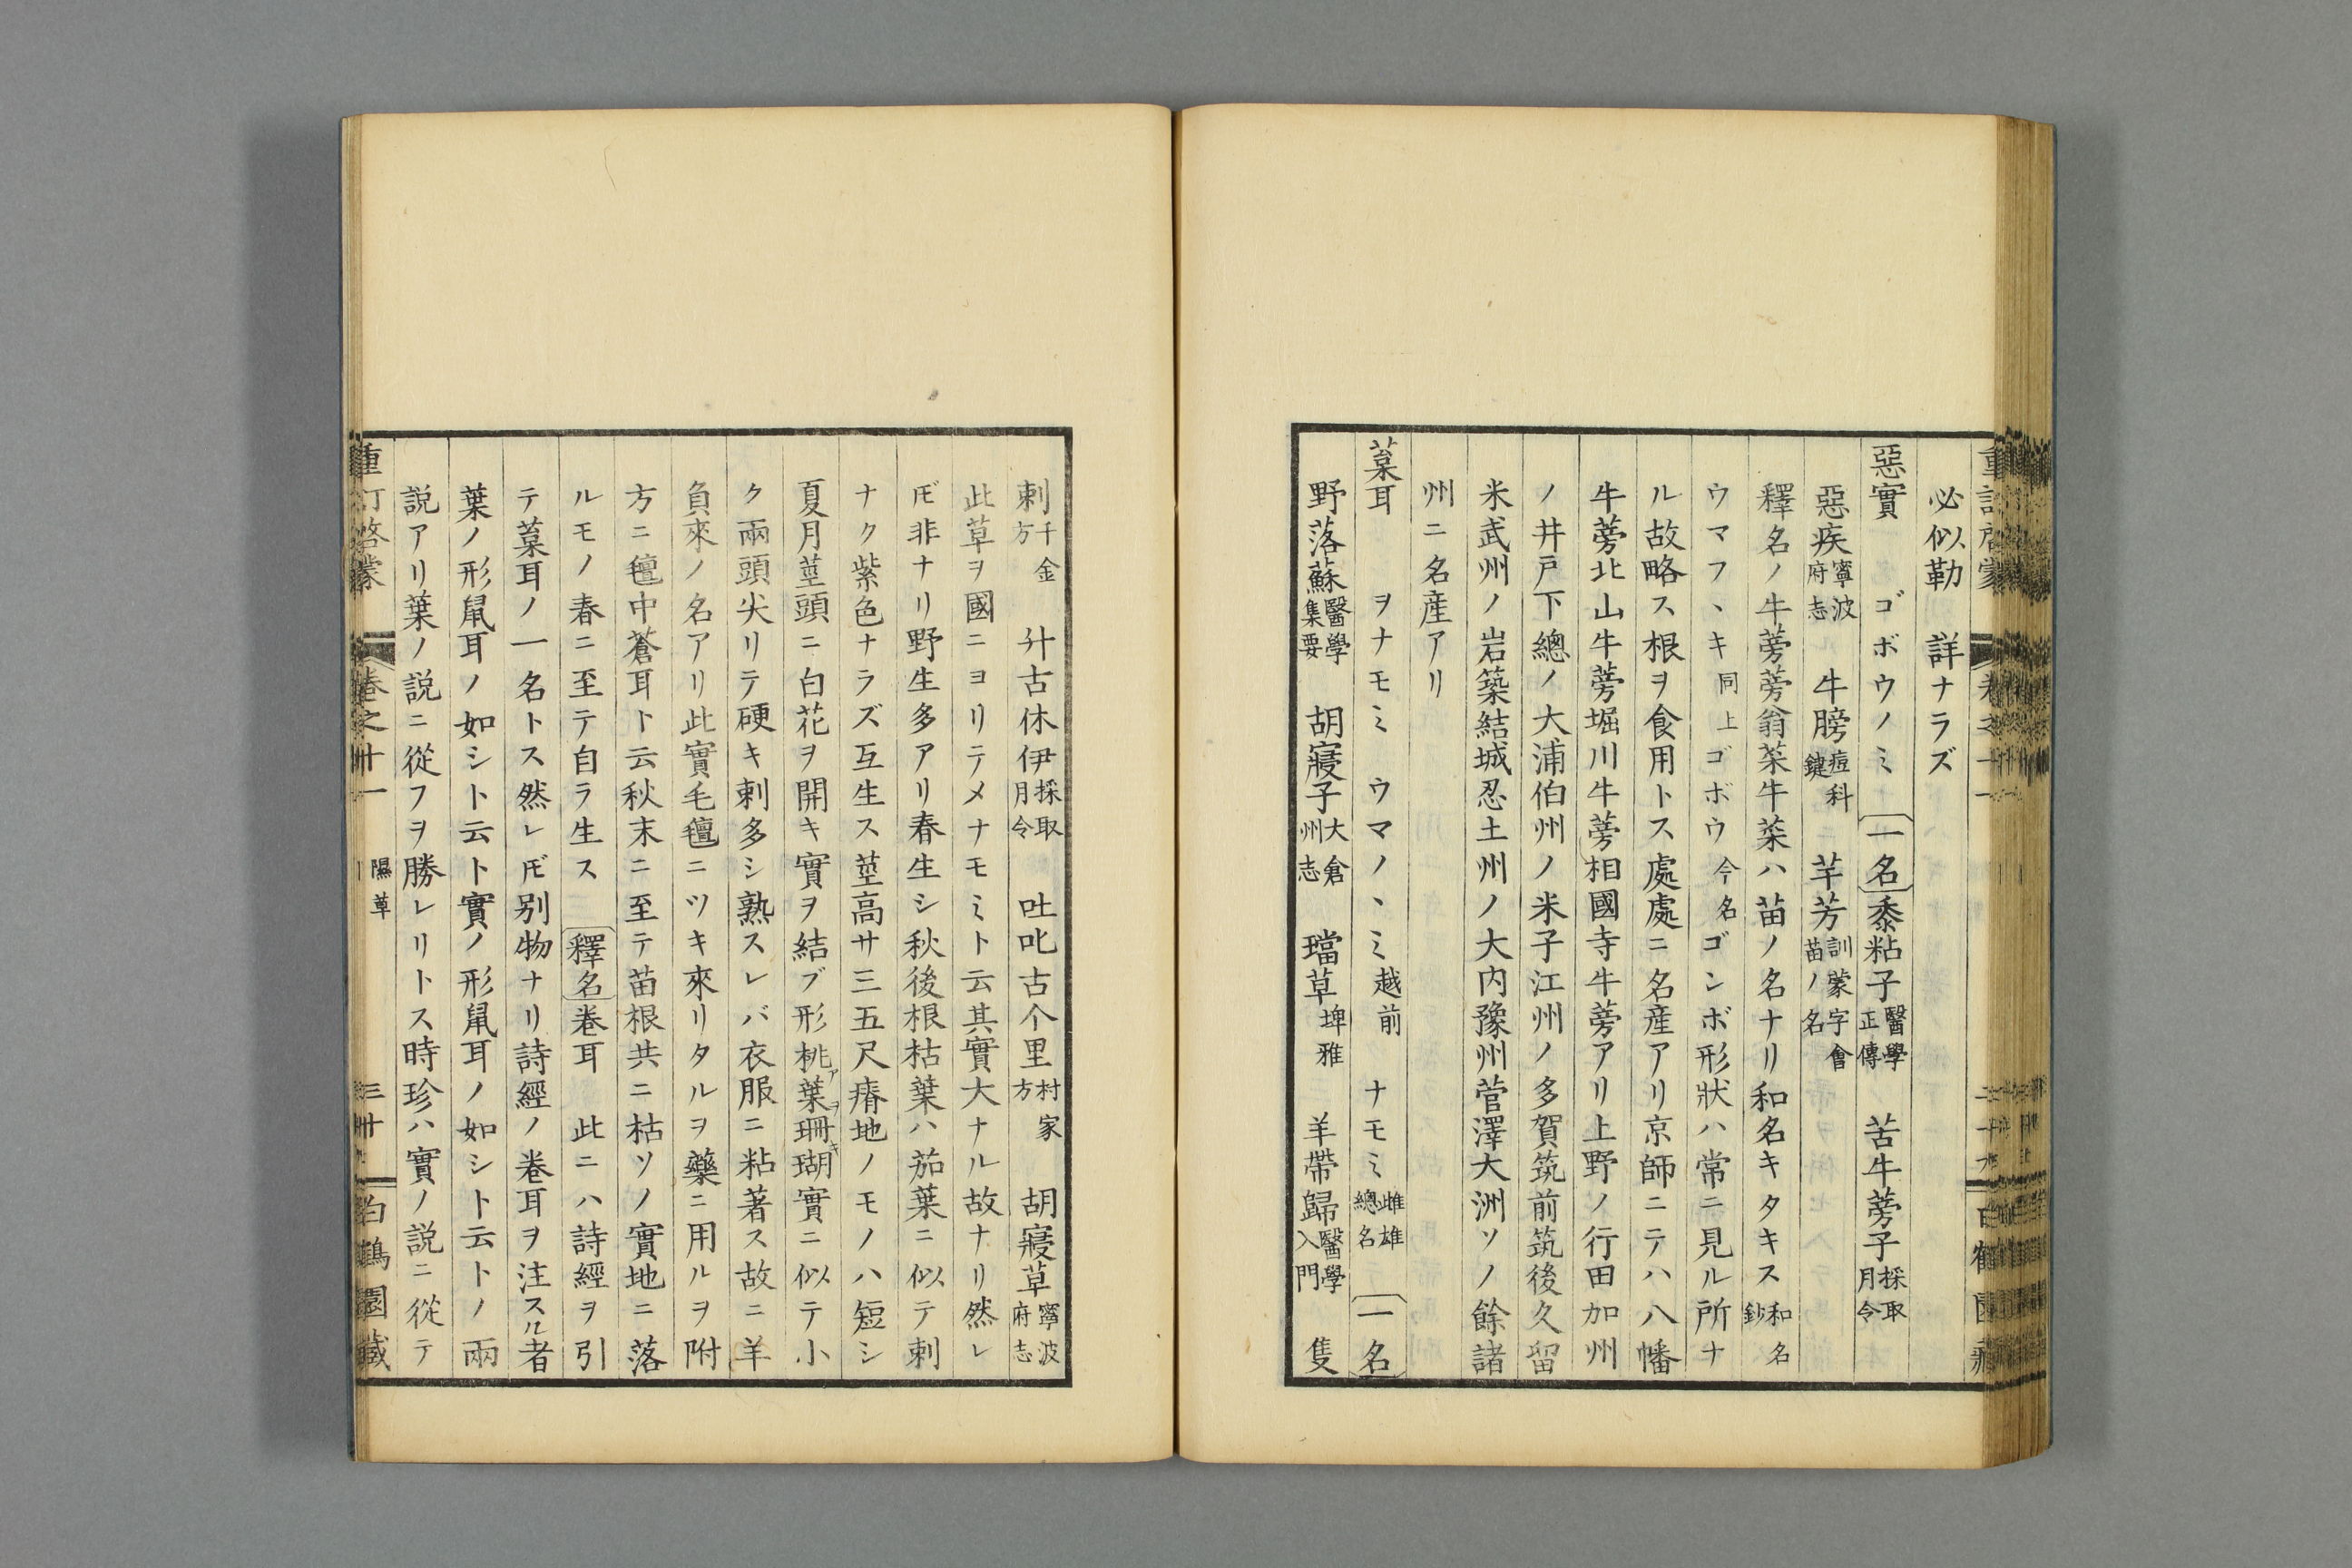 必似勒　詳ナラズ
惡實　ゴボウノミ　一名　黍粘子醫學正傳　苦牛蒡子採取月令
惡疾寧波府志　牛膀痘科鍵　芉芳訓蒙字會苗ノ名
釋名ノ牛蒡蒡翁菜牛菜ハ苗ノ名ナリ和名キタキス和名鈔
ウマフヽキ同上ゴボウ今名ゴンボ形狀ハ常ニ見ル所ナ
ル故略ス根ヲ食用トス處處ニ名産アリ京師ニテハ八幡
牛蒡北山牛蒡堀川牛蒡相國寺牛蒡アリ上野ノ行田加州
ノ井戸下總ノ大浦伯州ノ米子江州ノ多賀筑前筑後久留
米武州ノ岩築結城忍土州ノ大内豫州菅澤大洲ソノ餘諸
州ニ名産アリ
葈耳　ヲナモミ　ウマノヽミ越前　ナモミ雌雄總名　一名
野落蘇醫學集要　胡寢子大倉州志　璫草埤雅　羊帶歸醫學入門　隻
刺千金方　升古休伊採取月令　吐叱古个里村家方　胡寢草寧波府志
此草ヲ國ニヨリテメナモミト云其實大ナル故ナリ然レ
𪜈非ナリ野生多アリ春生シ秋後根枯葉ハ茄葉ニ似テ刺
ナク紫色ナラズ互生ス莖高サ三五尺瘠地ノモノハ短シ
夏月莖頭ニ白花ヲ開キ實ヲ結ブ形桃葉珊瑚アヲキ實ニ似テ小
ク兩頭尖リテ硬キ刺多シ熟スレバ衣服ニ粘著ス故ニ羊
負來ノ名アリ此實毛氊ニツキ來リタルヲ藥ニ用ルヲ附
方ニ氊中蒼耳ト云秋末ニ至テ苗根共ニ枯ソノ實地ニ落
ルモノ春ニ至テ自ラ生ス　釋名　卷耳　此ニハ詩經ヲ引
テ葈耳ノ一名トス然レ𪜈別物ナリ詩經ノ卷耳ヲ注スル者
葉ノ形鼠耳ノ如シト云ト實ノ形鼠耳ノ如シト云トノ兩
説アリ葉ノ説ニ從フヲ勝レリトス時珍ハ實ノ説ニ從テ
重訂啓蒙　卷之十一　隰草　三十　白鶴園藏